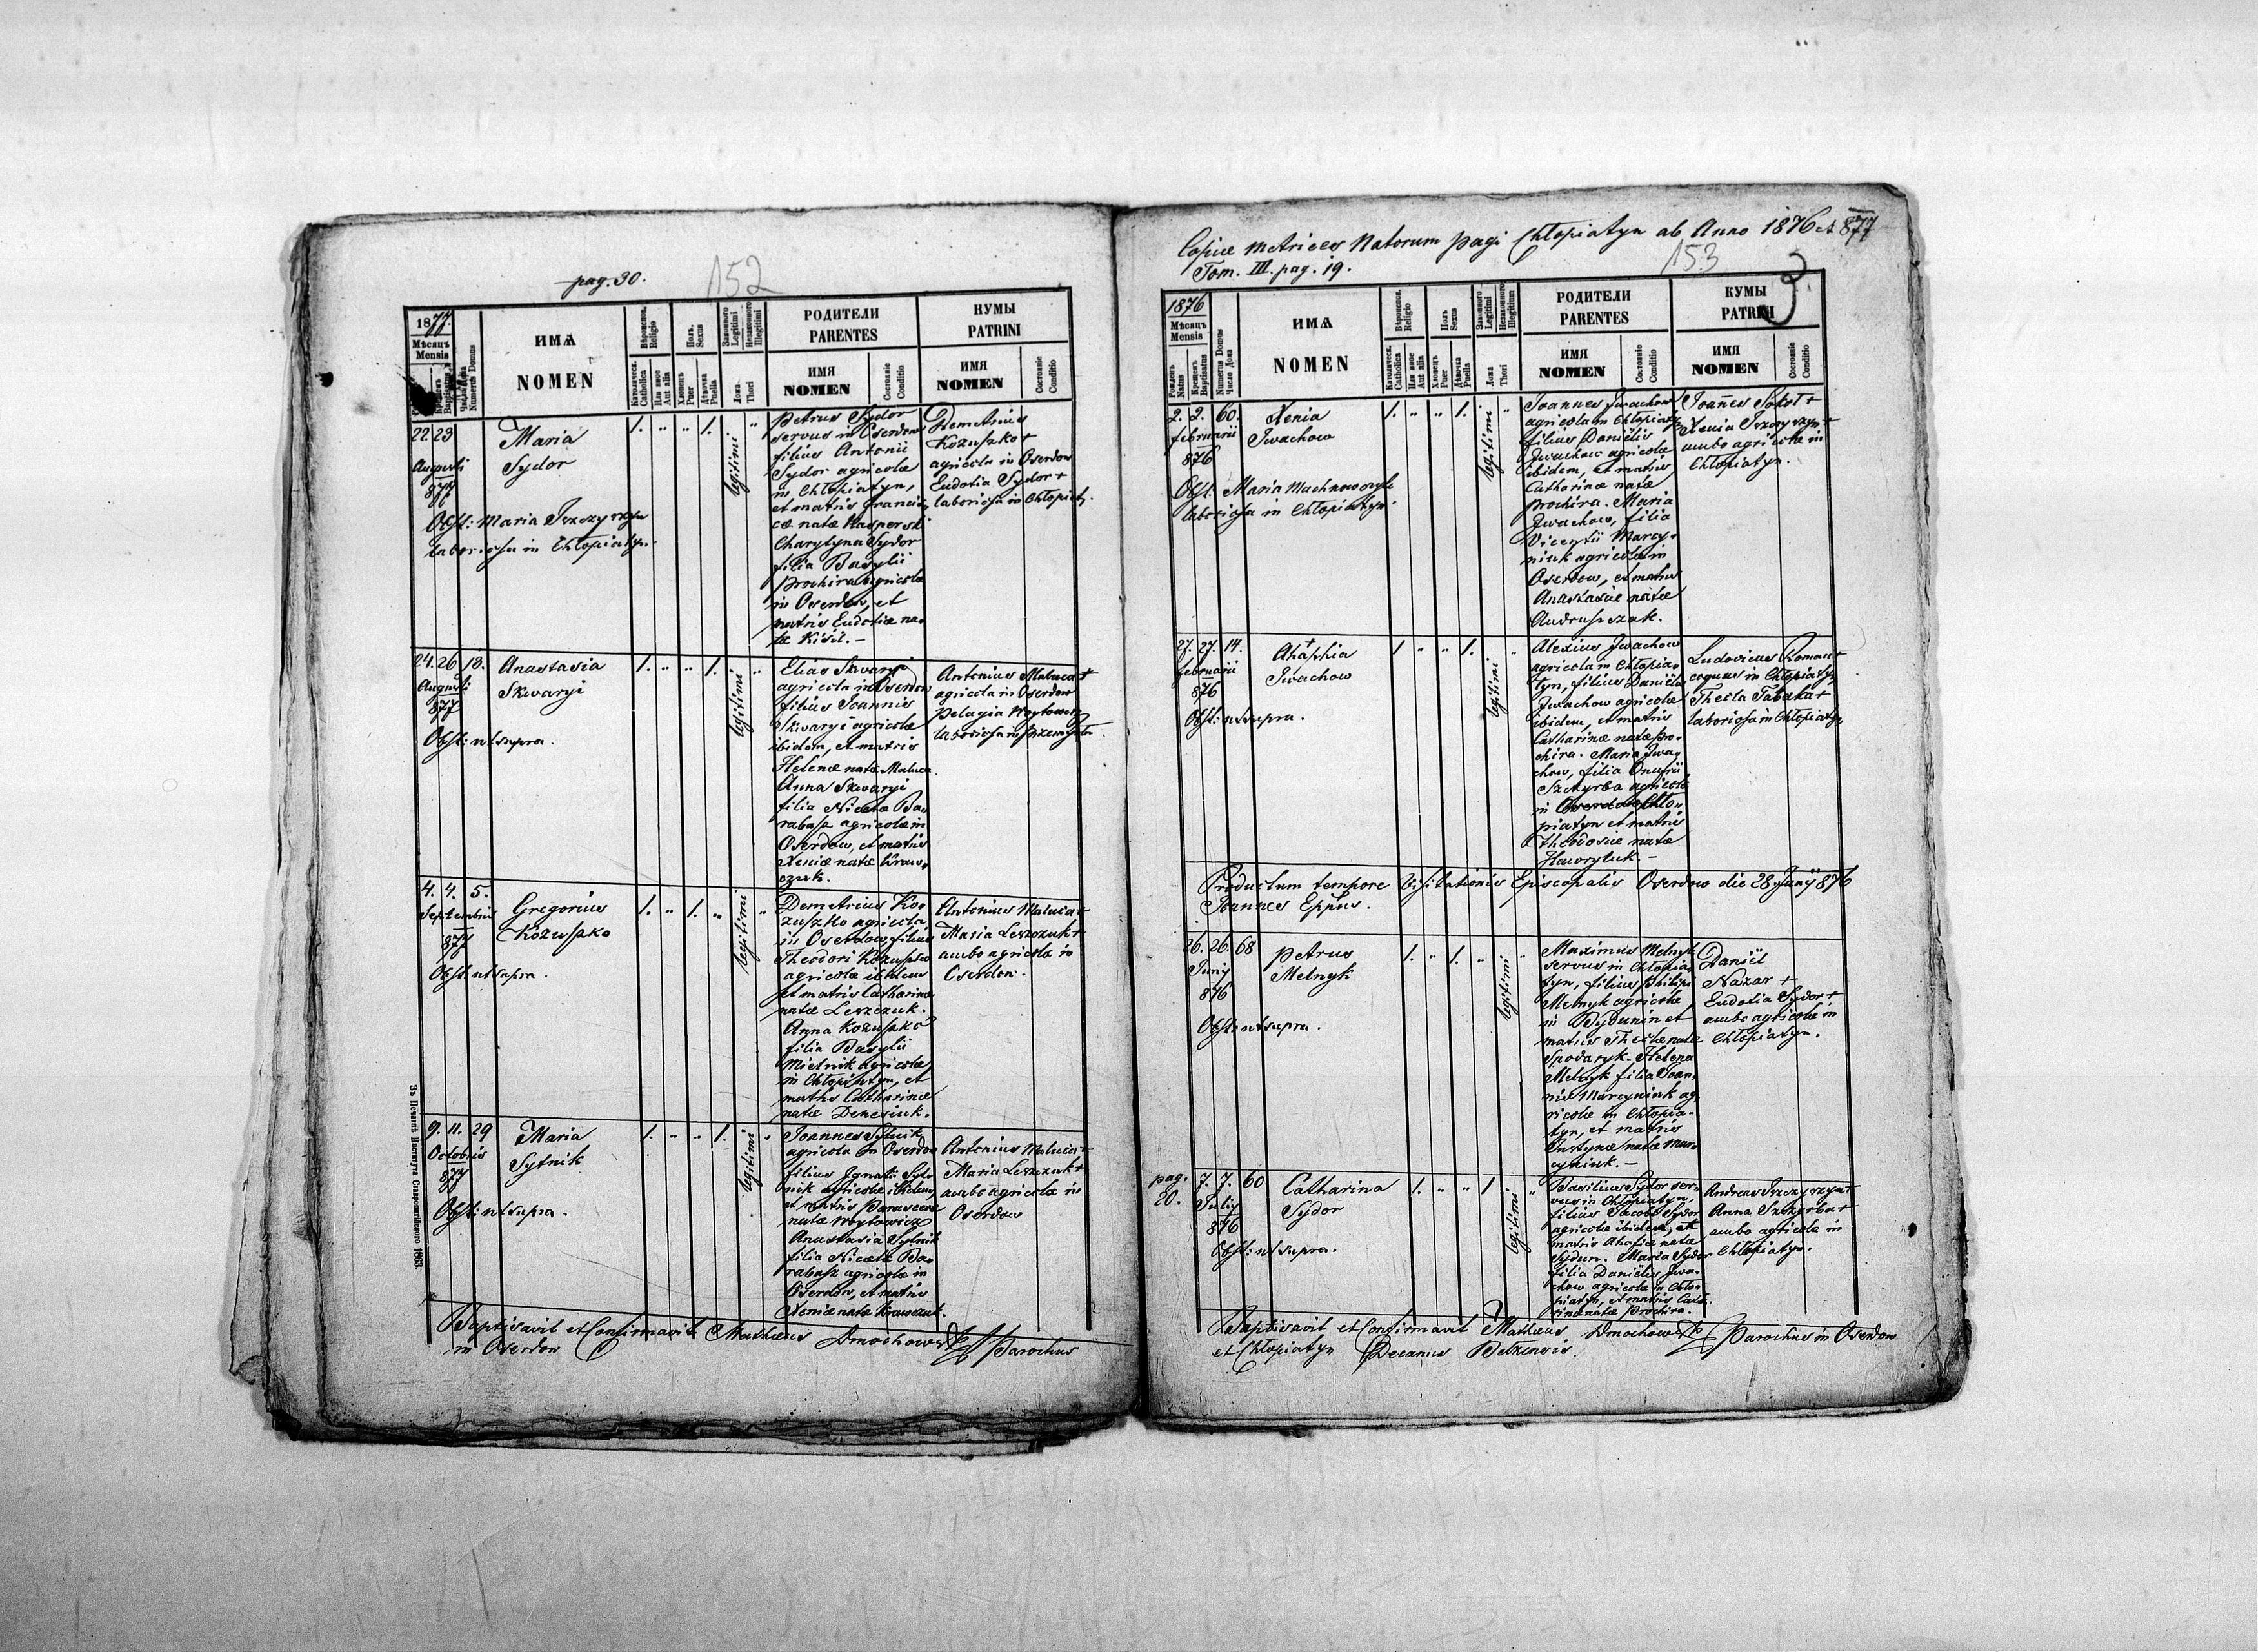 pag. 30.
152
1877.
Мѣсяцъ
Mensis
Крещенъ
Baptisatus
Numerus Domus
ИМѦ
NOMEN
Вѣроиспов.
Religio
Католическ.
Catholica
Или иное
Aut alia
Полъ
Sexus
Хлопецъ
Puer
Дѣвочка
Puella
Законного
Legitimi
Незаконного
Illegitimi
Ложа
Thori
РОДИТЕЛИ
PARENTES
ИМЯ
NOMEN
Состояніе
Conditio
КУМЫ
PATRINI
ИМЯ
NOMEN
Состояніе
Conditio
22. 23
Augusti
877
Maria
Sydor
1. " " 1.
legitimi "
Obst: Maria
laboriosa in Chłopiatyn.
Petrus Sydor
servus in Oserdow
filius Antonii
Sydor agricolae
in Chłopiatyn,
et matris Francis
cae natae Kasperski
Charytyna Sydor
filia Basylii
Prochira agricolae
in Oserdow, et
matris Eudoxiae na
tae Kisil. -
Demetrius
Kozuszko +
agricola in Oserdow
Eudoxia Sydor +
laboriosa in Chłopiaty.
24. 26 18.
Augusti
877
Anastasia
Skwaryi
1. " " 1.
legitimi "
Obst: ut supra.
Elias Skwaryi
agricola in Oserdow
filius Joannis
Skwaryi agricolae
ibidem, et matris
Helenae natae Maluca.
Anna Skwaryi
filia Nicetae Ba
rabasz agricolae in
Oserdow, et matris
Xeniae natae Kraw
czuk.
Antonius Maluca +
agricola in Oserdow
Pelagia Woytowicz
laboriosa in
4. 4. 5.
Septembris
877
Gregorius
Kozuszko
1. " 1. "
legitimi "
Obst: ut supra.
Demetrius Ko
zuszko agricola
in Oserdow, filius
Theodori Kozuszko
agricolae ibidem
et matris Catharinae
natae Leszczuk.
Anna Kozuszko
filia Basylii
Mielnik agricolae
in Chłopiatyn, et
matris Catharinae
natae Denesiuk.
Antonius Maluca +
Maria Leszczuk +
ambo agricolae in
Oserdow.
9. 11. 29
Octobris
877
Maria
Sytnik
1. " " 1.
legitimi "
Obst: ut supra.
Joannes Sytnik
agricola in Oserdow
filius Ignatii Syt
nik agricolae ibidem
et matris Parascevae
natae Woytowicz
Anastasia Sytnik
filia Nicetae Ba
rabasz agricolae in
Oserdow, et matris
Xeniae natae Krawczuk.
Antonius Maluca +
Maria Leszczuk +
ambo agricolae in
Oserdow
Baptisavit et Confirmavit Mathaeus Dmochowski Parochus
in Oserdow
Зъ Печатнѣ Института Ставропигійского 1863.
Copiae metrices Natorum pagi Chłopiatyn ab Anno 1876 et 877
Tom. III. pag. 19.
153
3
1876
Мѣсяцъ
Mensis
Рожденъ
Natus
Крещенъ
Baptisatus
Numerus Domus
Число Дома
ИМѦ
NOMEN
Вѣроиспов.
Religio
Католическ.
Catholica
Или иное
Aut alia
Полъ
Sexus
Хлопецъ
Puer
Дѣвочка
Puella
Законного
Legitimi
Незаконного
Illegitimi
Ложа
Thori
РОДИТЕЛИ
PARENTES
ИМЯ
NOMEN
Состояніе
Conditio
КУМЫ
PATRINI
ИМЯ
NOMEN
Состояніе
Conditio
2. 2. 60.
februarii
876
Xenia
Iwachow
1. " " 1.
legitimi "
Obst: Maria
laboriosa in Chłopiatyn.
Joannes Iwachow
agricola in Chłopiatyn
filius Daniëlis
Iwachow agricolae
ibidem, et matris
Catharinae natae
Prochira. Maria
Iwachow, filia
Vicentii Marcy
niuk agricolae in
Oserdow, et matris
Anastasiae natae
Andruszczak.
Joannes Sokoł +
Xenia
ambo agricolae in
Chłopiatyn.
27. 27. 14.
februarii
876
Ahaphia
Iwachow
1 " " 1.
legitimi "
Obst: ut supra.
Alexius Iwachow
agricola in Chłopia
tyn, filius Daniëlis
Iwachow agricolae
ibidem, et matris
Catharinae natae Pro
chira. Maria Iwa
chow, filia Onufrii
Szczyrba agricolae
in Oserdow Chło
piatyn et matris
Theodosiae natae
Hawryluk. -
Ludovicus Roman +
coquus in Chłopiatyn
Thecla Tabaka +
laboriosa in Chłopiatyn
Productum tempore Visitationis Episcopalis Oserdow die 28 Junij 876
Joannes Eppus.
26. 26. 68
Junij
876
Petrus
Melnyk
1. " 1. "
legitimi "
Obst: ut supra.
Maximus Melnyk
servus in Chłopia
tyn, filius Philipi
Melnyk agricolae
in Bydunin et
matris Theclae natae
Spodaryk. Helena
Melnyk filia Joan
nis Marcyniuk ag
ricolae in Chłopia
tyn, et matris
Justynae natae Mar
cyniuk. -
Daniël
Nazar +
Eudoxia Sydor +
ambo agricolae in
Chłopiatyn.
pag.
20.
7. 7. 60
Julij
876
Catharina
Sydor
1. " " 1
legitimi "
Obst: ut supra.
Basilius Sydor ser
vus in Chłopiatyn,
filius Jacobi Sydor
agricolae ibidem, et
matris Ahafiae natae
Sydun. Maria Sydor
filia Daniëlis Iwa
chow agricolae in Chło
piatyn, et matris Catha
rinae natae Prochira.
Andreas
Anna Szczyrba +
ambo agricolae in
Chłopiatyn.
Baptisavit et Confirmavit Mathaeus Dmochowski Parochus in Oserdow
et Chłopiatyn Decanus Belzensis.